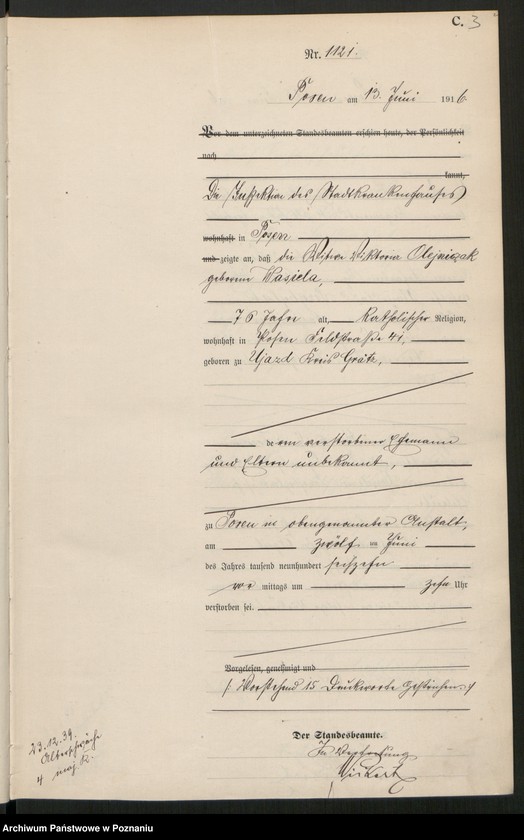 C. 3
Nr. 1121.
Posen am 13. Juni 1916
Vor dem unterzeichneten Standesbeamten erschien heute, der Persönlichkeit
nach
kannt,
Die Inspektion des Stadtkrankenhauses
wohnhaft in Posen
und zeigte an, daß die Witwe Viktoria Olejniczak
geborene Wasiela,
76 Jahre alt, Katholischer Religion,
wohnhaft in Posen Feldstraße 41,
geboren zu Ujazd Kreis Grätz,
deren verstorbener Ehemann
und Eltern unbekannt,
zu Posen in obengenannter Anstalt,
am zwölf ten Juni
des Jahres tausend neunhundert sechzehn
vor mittags um zehn Uhr
verstorben sei.
Vorgelesen, genehmigt und
/: Vorstehend 15 Druckworte gestrichen :/
Der Standesbeamte.
In Vertretung
23.12.39.
Altersschwäche
4
Archiwum Państwowe w Poznaniu